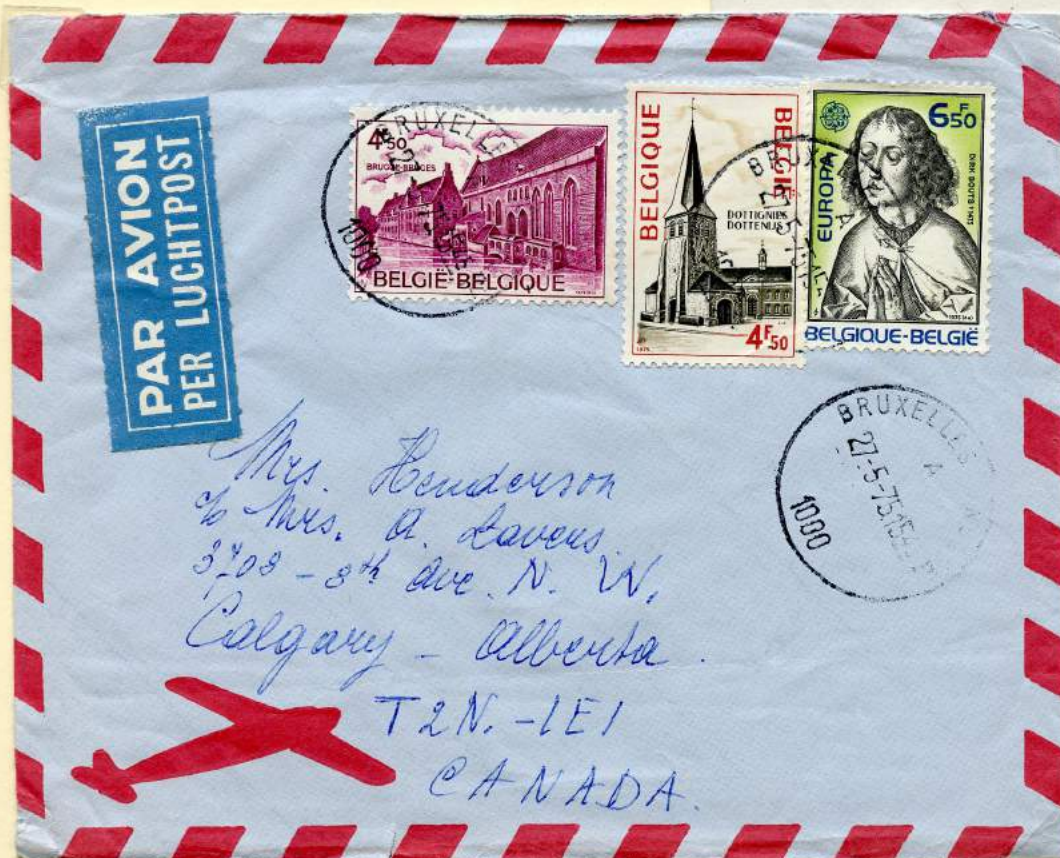 PAR AVION
PER LUCHTPOST
4F50
BRUGGE-BRUGES
BELGIË-BELGIQUE
BRUXELLES
1000
BELGIQUE
BELGIË
DOTTIGNIES
DOTTENIJS
4F50
1975
BRUXELLES
6F50
EUROPA
DIRK BOUTS †1475
BELGIQUE-BELGIË
BRUXELLES
A
27-5-75
1000
Mrs. Henderson
c/o Mrs. A. Lavers.
3708 - 8th Ave. N. W.
Calgary - Alberta.
T2N.-1E1
CANADA.